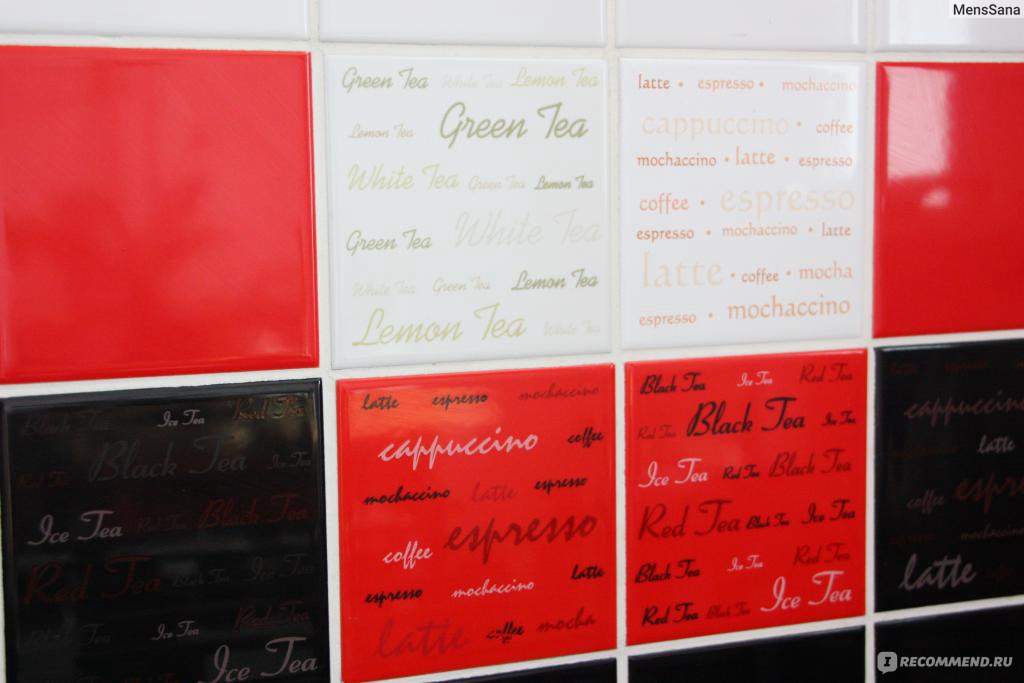 MensSana
Green Tea White Tea Lemon Tea
Lemon Tea Green Tea
White Tea Green Tea Lemon Tea
Green Tea White Tea
White Tea Green Tea Lemon Tea
Lemon Tea White Tea
latte • espresso • mochaccino
cappuccino • coffee
mochaccino • latte • espresso
coffee • espresso
espresso • mochaccino • latte
latte • coffee • mocha
espresso • mochaccino
Black Tea Ice Tea Red Tea
Black Tea Ice Tea
Ice Tea Red Tea Black Tea
Red Tea Black Tea Ice Tea
Ice Tea Red Tea
Ice Tea
latte espresso mochaccino
cappuccino coffee
mochaccino latte espresso
coffee espresso
espresso mochaccino latte
latte coffee mocha
Black Tea Ice Tea Red Tea
Red Tea Black Tea Ice Tea
Ice Tea Red Tea Black Tea
Red Tea Black Tea Ice Tea
Black Tea Ice Tea Red Tea
Red Tea Black Tea Ice Tea
cappuccino
latte
coffee
latte
IRECOMMEND.RU